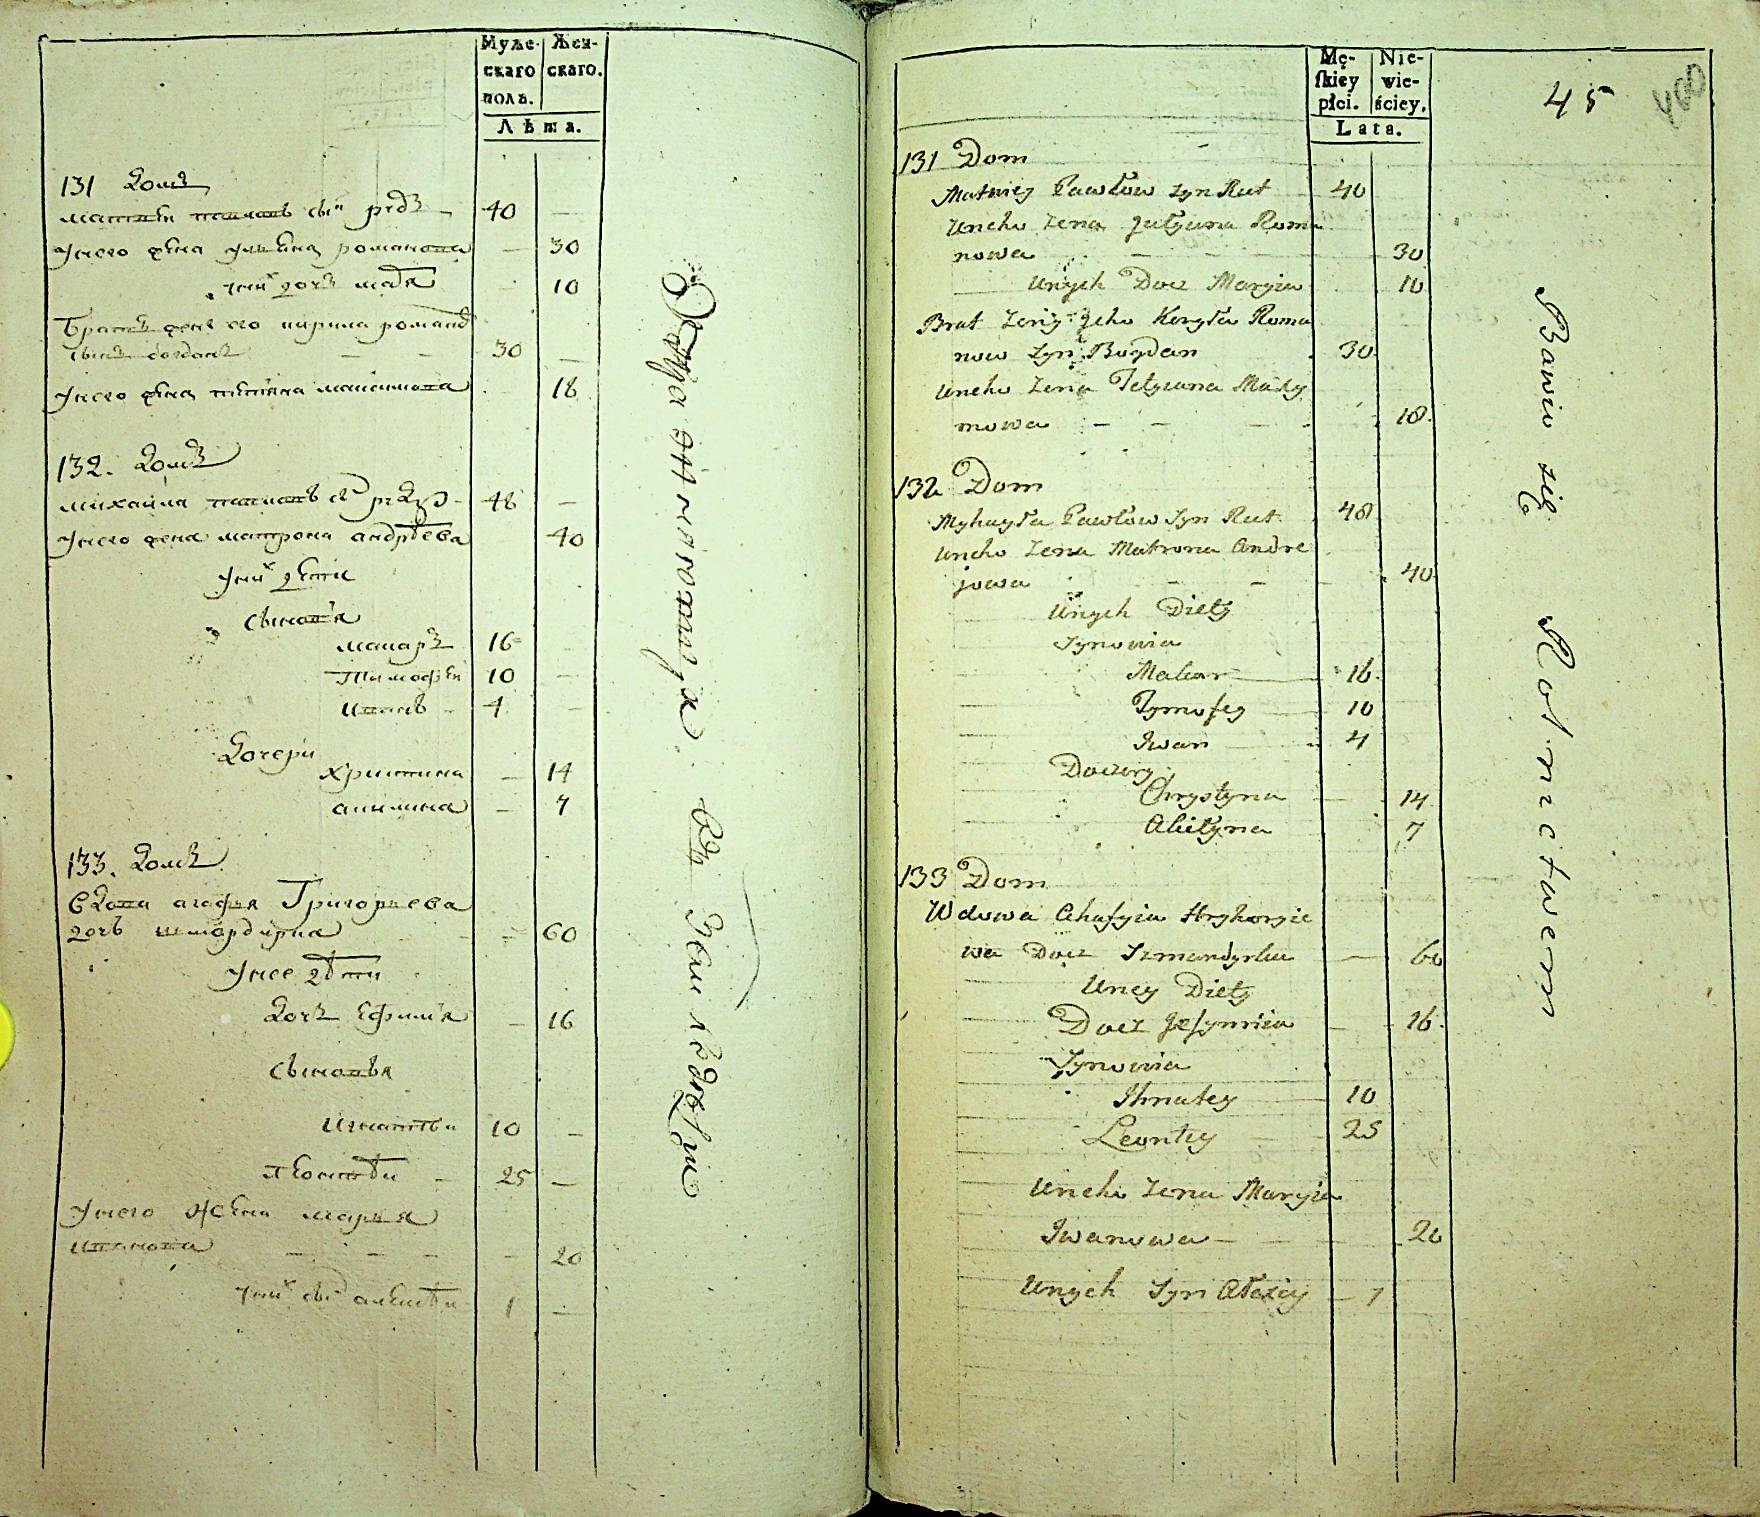 Муже-
скаго
полъ.
Жен-
скаго.
Лѣта.
131 Домъ
матвѣй павловъ сынъ рудъ — 40 —
Унего жена ульяна романова — 30
унихъ дочь марья 10
Братъ жены его кирила романовъ
сынъ богданъ — — 30 —
Унего жена татияна максимова 18
132. Домъ
михайла павловъ сынъ рудъ 48 —
Унего жена матрона андрѣева 40
Унихъ дѣти
сыновья
макаръ 16
Тимофей 10 —
иванъ 4 —
Дочери
христина — 14
акилина — 7
133. Домъ
Вдова агафья Григорьева
дочь шмондирка — 60
Унее дѣти
Дочь Ефимья — 16
сыновья
игнатѣи 10 —
леонтѣи — 25 —
Унего жена марья
иванова — — — — 20
унихъ сынъ алексѣи 1 —
Mę-
skiey
płci.
Nie-
wie-
ściey,
Lata.
45
400
131 Dom
Matwiey Pawłow syn Rut 40
Uneho Zena Julyana Roma
nowa — 30
Unych Docz Maryia 10
Brat Zeny Jeho Keryła Roma
now Syn Bogdan 30
Uneho Zena Tetyana Maxy
mowa — — — 18.
132 Dom
Myhayła Pawłow Syn Rut 48
Uneho Zena Matrona Andre
jowa — — 40
Unych Diety
Synowia
Makar 16.
Tymofey 10
Iwan 4
Doczery
Chrystyna — 14
Akiłyna 7
133 Dom
Wdowa Ahafyia Hryhoryie
wa Docz Szmandyrka — 60
Uney Diety
Docz Jefymiia — 16.
Synowia
Ihnatey 10
Leontey — 25
Uneho Zena Maryia
Iwanowa — — 20
Unych Syn Alexiy — 1
Bawio się Rolnictwem